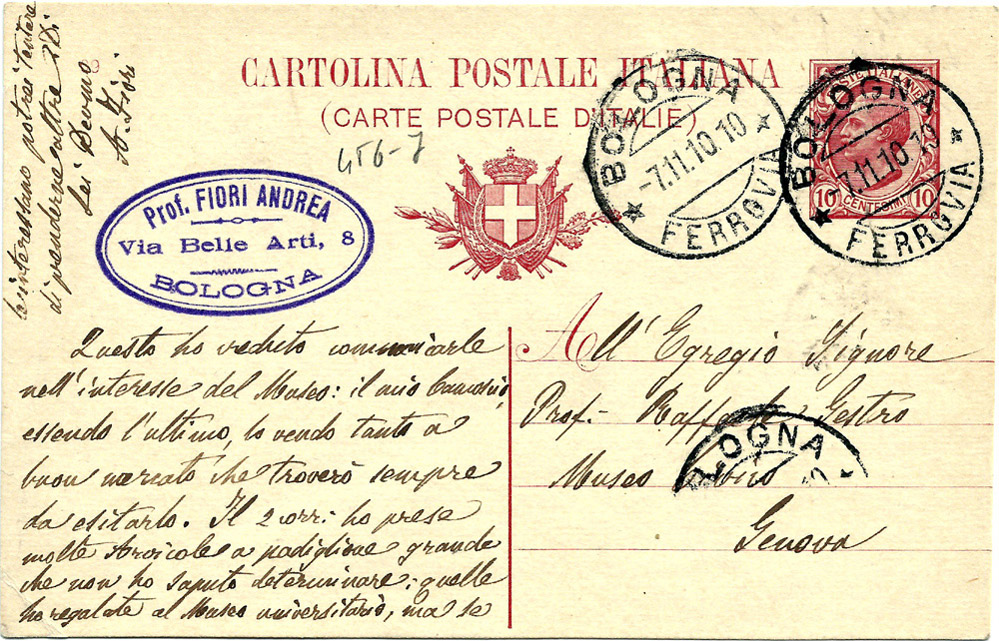 CARTOLINA POSTALE ITALIANA
(CARTE POSTALE D'ITALIE)
456-7
Prof. FIORI ANDREA
Via Belle Arti, 8
BOLOGNA
BOLOGNA
-7.11.10.10
FERROVIA
BOLOGNA
-7.11.10.10
FERROVIA
POSTE ITALIANE
10 CENTESIMI 10
All' Egregio Signore
Prof. Raffaele Gestro
Museo Civico
Genova
LOGNA
Questo ho veduto comunicarle
nell'interesse del Museo: il mio
essendo l'ultimo, lo vendo tanto a
buon mercato che troverò sempre
da esitarlo. Il 2 ho prese
molte Arvicole a padiglione grande
che non ho saputo determinare; quelle
ho regalate al Museo universitario, ma se
le interessano potrei tentare
di prenderne altre 2 Di
Lei Devmo
A. Fiori